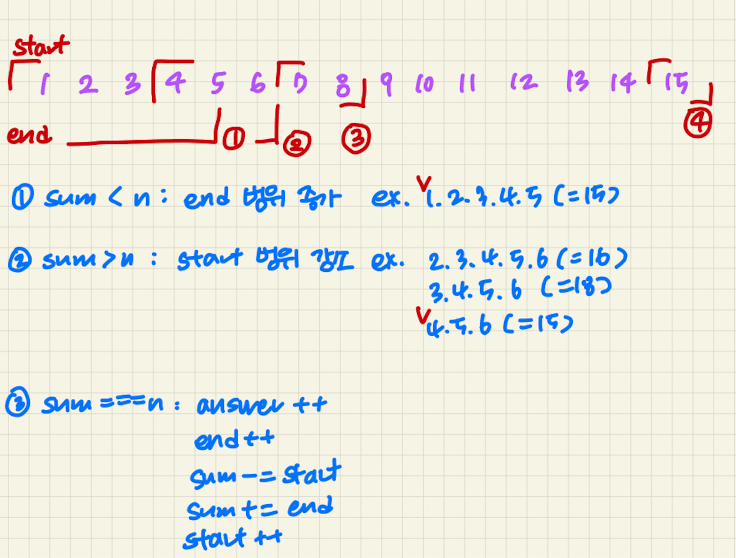 start
1 2 3 4 5 6 7 8 9 10 11 12 13 14 15
end ① ② ③ ④
① sum < n : end 범위 증가 ex. v 1.2.3.4.5 (=15)
② sum > n : start 범위 감소 ex. 2.3.4.5.6 (=16)
3.4.5.6 (=18)
v 4.5.6 (=15)
③ sum === n : answer ++
end ++
sum -= start
sum += end
start ++